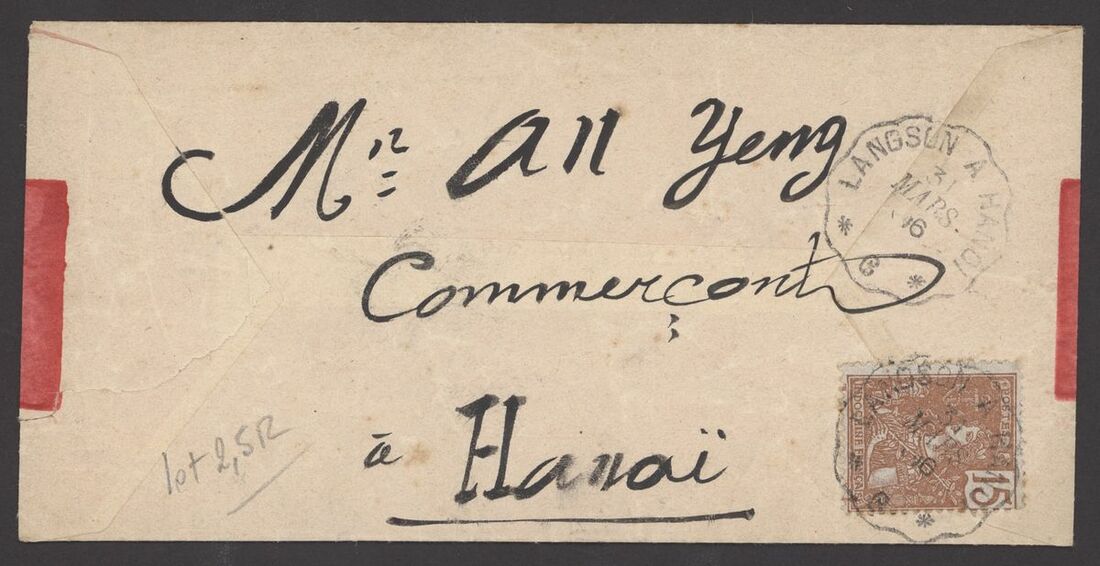 Mr An Yeng
Commerçant
à Hanoï
LANGSON A HANOI
31
MARS
06
LANGSON A HANOI
MARS
06
POSTES
INDOCHINE FRANÇAISE
15
lot 2,5R